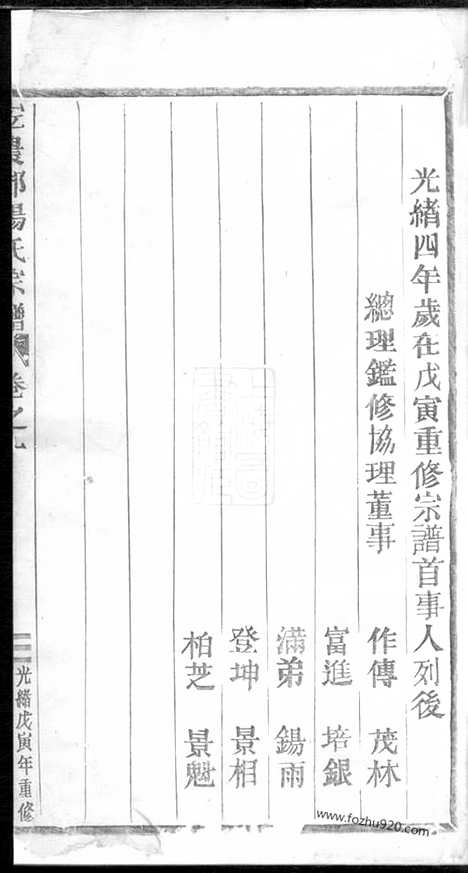 光緒四年歲在戊寅重修宗譜首事人列後
總理鑑修協理董事
作傳 茂林
富進 培銀
滿弟 錫雨
登坤 景相
柏芝 景魁
楊氏宗譜 卷之
光緒戊寅年重修
www.fozhu920.com